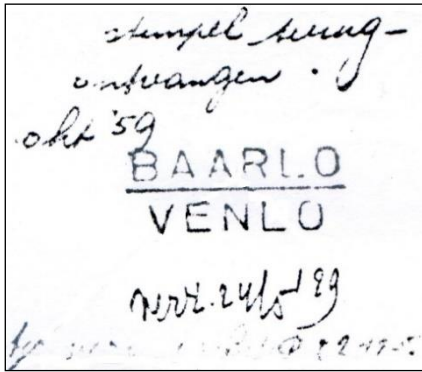 stempel terug-
ontvangen.
okt '59
BAARLO
VENLO
verz. 24/5